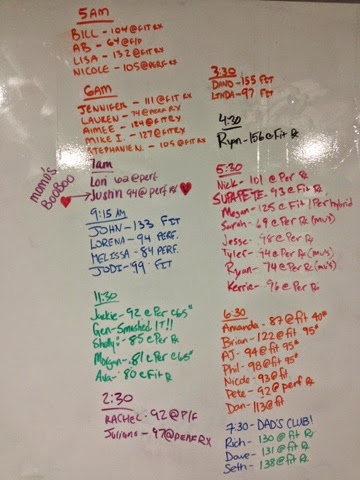 5AM
BILL - 104@FIT RX
AB - 64@F/P
LISA - 132@FIT RX
NICOLE - 105@PERF RX
6AM
JENNIFER - 111@FIT RX
LAUREN - 74@PERF RX
AIMEE - 124@FIT RX
MIKE I. - 127@FIT RX
STEPHANIE N. - 105@FIT RX
7am
Lori 102@perf
Justin 94@perf RX
momo's
BOOBOO
9:15 AM
JOHN - 133 FIT
LORENA - 94 PERF.
MELISSA - 84 PERF.
JUDI - 99 FIT
11:30
Jackie - 92@Per @65"
Gen - Smashed IT!!
Shelly - 85@Per Rx
Morgan - 81@Per @65"
Ava - 80@Fit Rx
2:30
RACHEL: 92@P/F
Juliana - 97@PERF RX
3:30
DAVID - 155 FIT
LINDA - 97 FIT
4:30
Ryan - 156@Fit Rx
5:30
Nick - 101@Per Rx
SUPAPETE - 93@Fit Rx
Megan - 125@Fit/Per hybrid
Sarah - 69@Per Rx (mu's)
Jesse - 98@Per Rx
Tyler - 94@Per Rx (mu's)
Ryan - 74@Per Rx (mu's)
Kerrie - 96@Per Rx
6:30
Amanda - 87@fit 40#
Brian - 122@fit 95#
AJ - 94@fit 95#
Phil - 98@fit 95#
Nicole - 93@fit
Pete - 92@perf Rx
Dan - 113@fit
7:30 - DAD'S CLUB!
Rich - 130@fit Rx
Dave - 131@fit Rx
Seth - 138@fit Rx